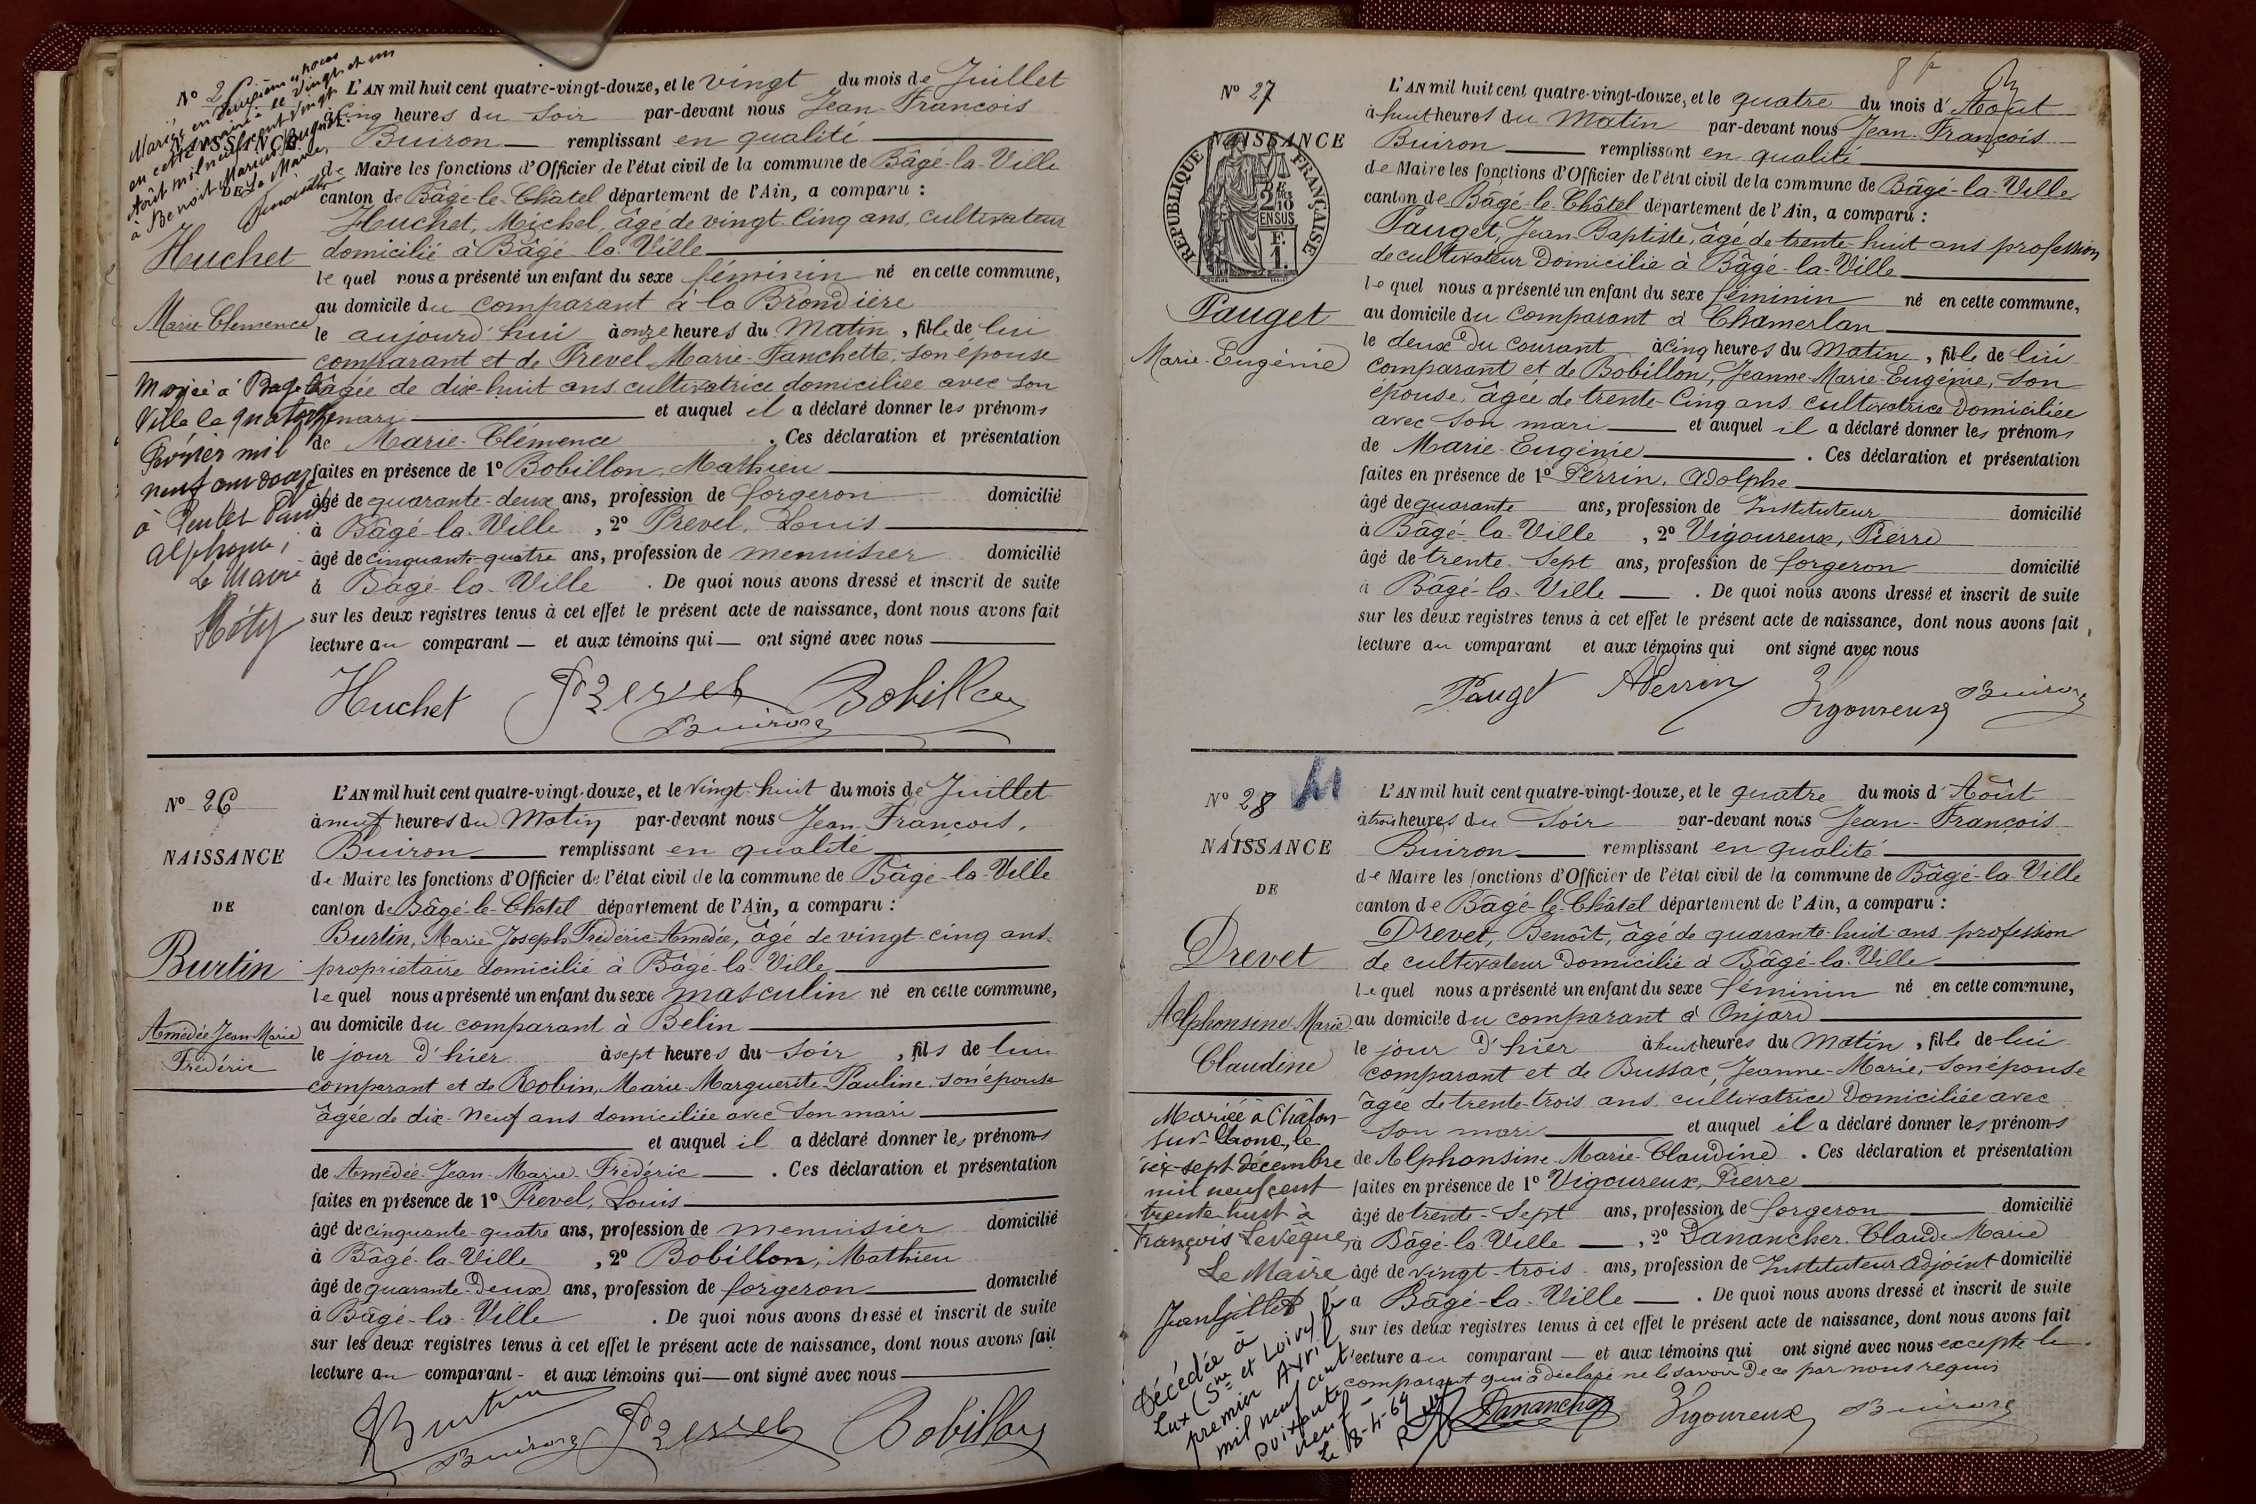 Nº 2
Mariée en deuxièmes noces
en cette mairie le vingt et un
Août mil neuf cent vingt
à Benoit Marius
Le Maire,
NAISSANCE
DE
Huchet
Marie-Clémence
Mariée à Bagé la
Ville le quatorze
Février mil
neuf cent douze
à
Alphonse,
Le Maire
L'AN mil huit cent quatre-vingt-douze, et le vingt du mois de Juillet
à Cinq heures du Soir par-devant nous Jean-François
Buiron remplissant en qualité
de Maire les fonctions d'Officier de l'état civil de la commune de Bâgé-la-Ville
canton de Bâgé-le-Châtel département de l'Ain, a comparu :
Huchet, Michel, âgé de vingt-Cinq ans, cultivateur
domicilié à Bâgé-la-Ville
lequel nous a présenté un enfant du sexe féminin né en cette commune,
au domicile du comparant à la Brondière
le aujourd'hui à onze heures du Matin, fille de lui
comparant et de Prevel, Marie-Fanchette, son épouse
âgée de dix-huit ans cultivatrice domiciliée avec son
mari et auquel il a déclaré donner les prénoms
de Marie-Clémence. Ces déclaration et présentation
faites en présence de 1º Bobillon, Mathieu
âgé de quarante-deux ans, profession de forgeron domicilié
à Bâgé-la-Ville, 2º Prevel, Louis
âgé de cinquante-quatre ans, profession de menuisier domicilié
à Bâgé-la-Ville. De quoi nous avons dressé et inscrit de suite
sur les deux registres tenus à cet effet le présent acte de naissance, dont nous avons fait
lecture au comparant et aux témoins qui ont signé avec nous
Huchet Prevel Bobillon
Buiron
Nº 26
NAISSANCE
DE
Burtin
Amédée Jean-Marie
Frédéric
L'AN mil huit cent quatre-vingt-douze, et le vingt-huit du mois de Juillet
à neuf heures du Matin par-devant nous Jean-François,
Buiron remplissant en qualité
de Maire les fonctions d'Officier de l'état civil de la commune de Bâgé-la-Ville
canton de Bâgé-le-Châtel département de l'Ain, a comparu :
Burtin, Marie-Joseph-Frédéric-Amédée, âgé de vingt-cinq ans
propriétaire domicilié à Bâgé-la-Ville
lequel nous a présenté un enfant du sexe masculin né en cette commune,
au domicile du comparant à Belin
le jour d'hier à sept heures du Soir, fils de lui
comparant et de Robin, Marie-Marguerite-Pauline, son épouse
âgée de dix-neuf ans domiciliée avec son mari
et auquel il a déclaré donner les prénoms
de Amédée-Jean-Marie-Frédéric. Ces déclaration et présentation
faites en présence de 1º Prevel, Louis
âgé de cinquante-quatre ans, profession de menuisier domicilié
à Bâgé-la-Ville, 2º Bobillon, Mathieu
âgé de quarante-Deux ans, profession de forgeron domicilié
à Bâgé-la-Ville. De quoi nous avons dressé et inscrit de suite
sur les deux registres tenus à cet effet le présent acte de naissance, dont nous avons fait
lecture au comparant - et aux témoins qui ont signé avec nous
Burtin Buiron Prevel Bobillon
Nº 27
NAISSANCE
RÉPUBLIQUE FRANÇAISE
2/10
EN SUS
F.
1
Pauget
Marie-Eugénie
L'AN mil huit cent quatre-vingt-douze, et le quatre du mois d'Août
à huit heures du Matin par-devant nous Jean-François
Buiron remplissant en qualité
de Maire les fonctions d'Officier de l'état civil de la commune de Bâgé-la-Ville
canton de Bâgé-le-Châtel département de l'Ain, a comparu :
Pauget, Jean-Baptiste, âgé de trente-huit ans profession
de cultivateur Domicilié à Bâgé-la-Ville
lequel nous a présenté un enfant du sexe féminin né en cette commune,
au domicile du comparant à Chamerlan
le deux Du courant à Cinq heures du Matin, fille de lui
comparant et de Bobillon, Jeanne-Marie-Eugénie, son
épouse, âgée de trente-Cinq ans cultivatrice Domiciliée
avec son mari et auquel il a déclaré donner les prénoms
de Marie-Eugénie. Ces déclaration et présentation
faites en présence de 1º Perrin, Adolphe
âgé de quarante ans, profession de Instituteur domicilié
à Bâgé-la-Ville, 2º Vigoureux, Pierre
âgé de trente-Sept ans, profession de forgeron domicilié
à Bâgé-la-Ville. De quoi nous avons dressé et inscrit de suite
sur les deux registres tenus à cet effet le présent acte de naissance, dont nous avons fait
lecture au comparant et aux témoins qui ont signé avec nous
Pauget APerrin Vigoureux Buiron
Nº 28
NAISSANCE
DE
Drevet
Alphonsine-Marie-
Claudine
Mariée à Châlon-
sur-Saone, le
dix-sept décembre
mil neuf cent
trente huit à
François Levêque,
Le Maire
Décédée à
Lux (Sne et Loire) le
premier Avril
mil neuf cent
soixante
neuf -
Le 18-4-69
L'AN mil huit cent quatre-vingt-douze, et le quatre du mois d'Août
à trois heures du Soir par-devant nous Jean-François
Buiron remplissant en qualité
de Maire les fonctions d'Officier de l'état civil de la commune de Bâgé-la-Ville
canton de Bâgé-le-Châtel département de l'Ain, a comparu :
Drevet, Benoît, âgé de quarante-huit ans profession
de cultivateur Domicilié à Bâgé-la-Ville
lequel nous a présenté un enfant du sexe féminin né en cette commune,
au domicile du comparant à Onjard
le jour d'hier à huit heures du Matin, fille de lui
comparant et de Bussac, Jeanne-Marie, son épouse
âgée de trente-trois ans cultivatrice Domiciliée avec
son mari et auquel il a déclaré donner les prénoms
de Alphonsine-Marie-Claudine. Ces déclaration et présentation
faites en présence de 1º Vigoureux, Pierre
âgé de trente-Sept ans, profession de forgeron domicilié
à Bâgé-la-Ville, 2º Danancher Claude Marie
âgé de vingt-trois ans, profession de Instituteur adjoint domicilié
à Bâgé-la-Ville. De quoi nous avons dressé et inscrit de suite
sur les deux registres tenus à cet effet le présent acte de naissance, dont nous avons fait
lecture au comparant et aux témoins qui ont signé avec nous excepté le
comparant qui a déclaré ne le savoir De ce par nous requis
Danancher Vigoureux Buiron